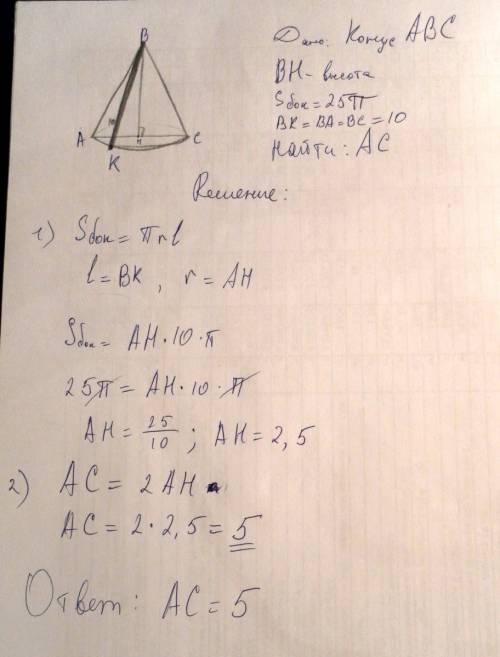 B
10
A
H
C
K
Дано: Конус ABC
BH - высота
Sбок = 25π
BK = BA = BC = 10
Найти: AC
Решение:
1) Sбок = πrl
l = BK, r = AH
Sбок = AH · 10 · π
25π = AH · 10 · π
AH = 25/10 ; AH = 2,5
2) AC = 2AH
AC = 2 · 2,5 = 5
Ответ: AC = 5